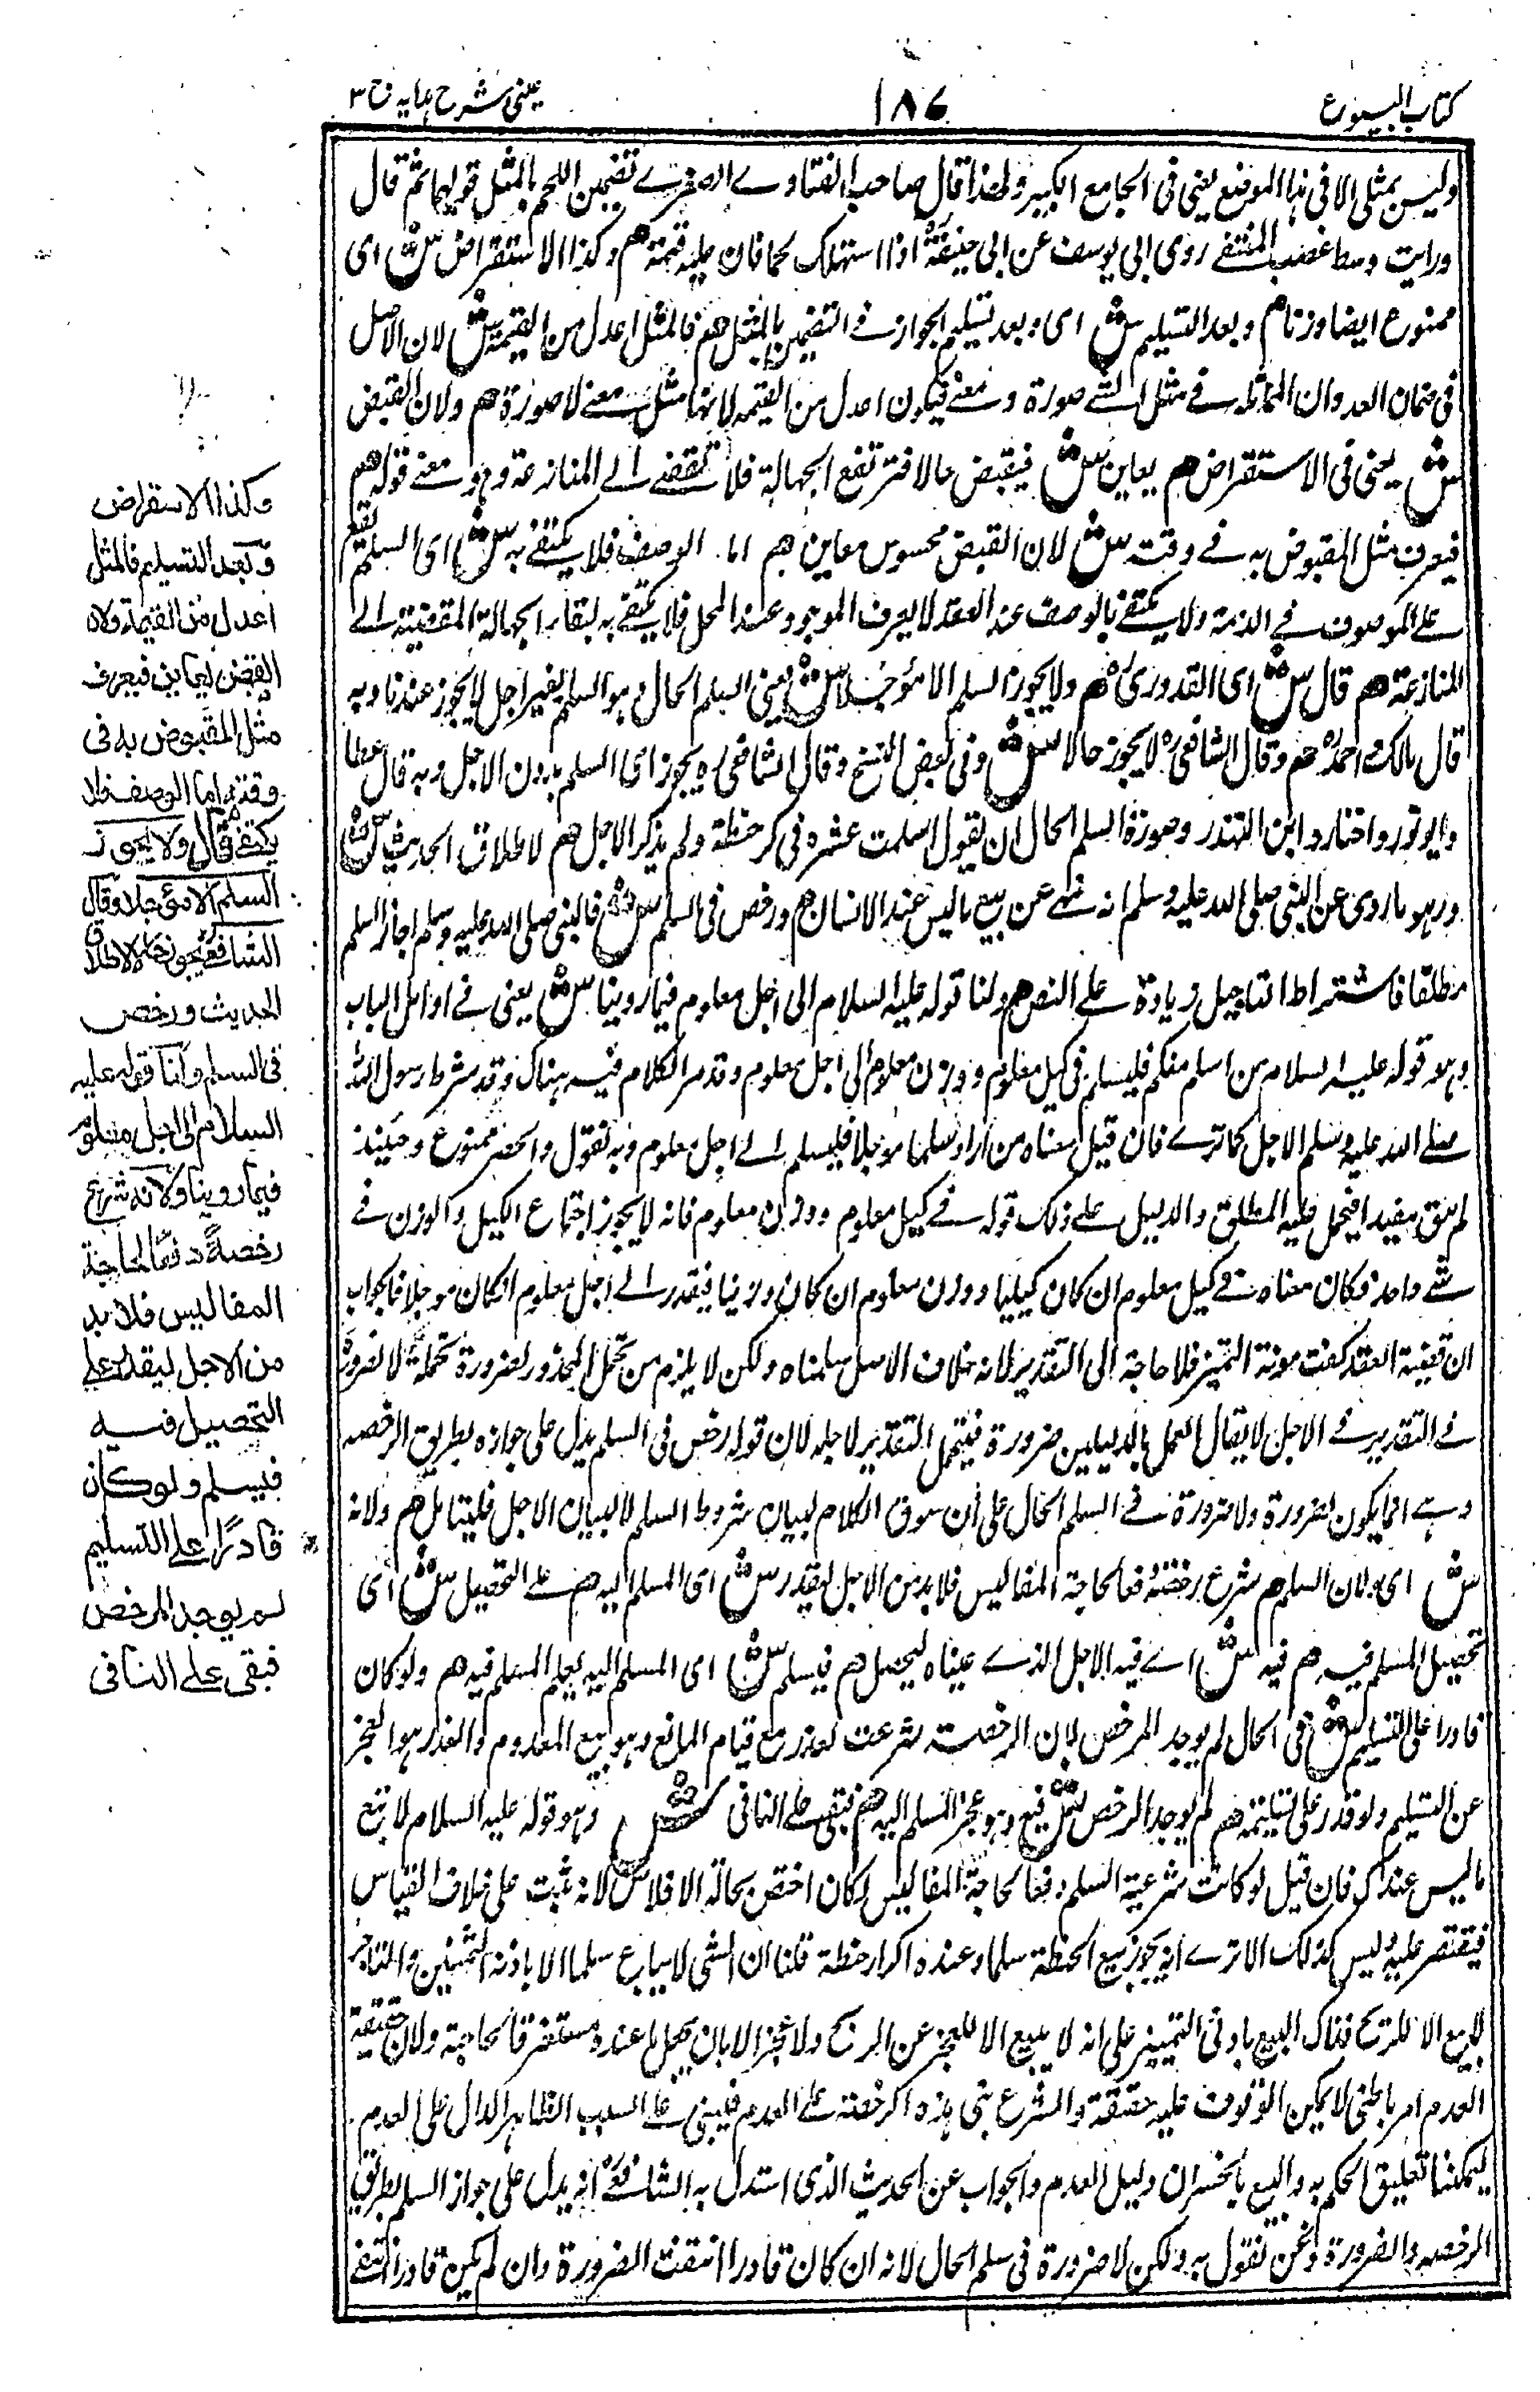 كتاب البيوع
١٨٧
عينى شرح هدايه ج ٣
وليس بمثلى الا فى هذا الموضع يعنى فى الجامع الكبير ولهذا قال صاحب الفتاوے الصغرے تضمين اللحم بالمثل قولهما ثم قال
ورايت وسط غصب المنتقے روى ابى يوسف عن ابى حنيفة اذا استهلك لحما فان عليه قيمته هم وكذا الاستقراض ش اى
ممنوع ايضا وزنا هم وبعد التسليم ش اى وبعد تسليم الجواز فے التضمين بالمثل هم فالمثل اعدل من القيمة ش لان الاصل
فى ضمان العدوان المماثلة فے مثل الشے صورة ومعنے فيكون اعدل من القيمه لانها مثل معنے لا صورة هم ولان القبض
ش يعنى فى الاستقراض هم يعاين ش فيقبض حالا فترتفع الجهالة فلا تفضے الے المنازعة وهو معنے قوله هم
فيعرف مثل المقبوض به فے وقته ش لان القبض محسوس معاين هم اما الوصف فلا يكتفے به ش اى السلم يقع
علے الموصوف فے الذمة ولا يكتفے بالوصف عند العقد لا يعرف الموجود عند المحل فلا يكتفے به لبقاء الجهالة المفضية الے
المنازعة هم قال ش اى القدورى هم ولا يجوز السلم الا مؤجلا ش يعنى السلم الحال وهو السلم بغير اجل لا يجوز عندنا وبه
قال مالك واحمد هم وقال الشافعى لا يجوز حالا ش وفى بعض النسخ وقال الشافعى يجوز اى السلم بدون الاجل وبه قال عطا
وابو ثور واختاره ابن المنذر وصورة السلم الحال ان يقول اسلمت عشره فى كر حنطة ولم يذكر الاجل هم لاطلاق الحديث ش
وهو ما روى عن النبى صلى الله عليه وسلم انه نهے عن بيع ما ليس عند الانسان هم ورخص فى السلم ش فالنبى صلى الله عليه وسلم اجاز السلم
مطلقا فاشتراط التاجيل زيادة علے النص هم ولنا قوله عليه السلام الى اجل معلوم فيما روينا ش يعنى فے اوائل الباب
وهو قوله عليه السلام من اسلم منكم فليسلم فى كيل معلوم ووزن معلوم الى اجل معلوم وقد مر الكلام فيه هناك وقد شرط رسول الله
صلے الله عليه وسلم الاجل كما ترے فان قيل معناه من اراد سلما موجلا فليسلم الے اجل معلوم وبه نقول والحصر ممنوع وحينئذ
لم يبق مقيدا فيحمل عليه المطلق والدليل علے ذلك قوله فے كيل معلوم ووزن معلوم فانه لا يجوز اجتماع الكيل والوزن فے
شے واحد فكان معناه فے كيل معلوم ان كان كيليا ووزن معلوم ان كان وزنيا فيقدر الے اجل معلوم ان كان موجلا فالجواب
ان قضية العقد كفت مونة التميز فلا حاجة الى التقدير لانه خلاف الاصل سلمناه ولكن لا يلزم من تحمل المحذور لضرورة تحمله لا لضرورة
فے التقدير فے الاجل لا يقال العمل بالدليلين ضرورة فيتحمل التقدير لاجله لان قوله رخص فى السلم يدل على جوازه بطريق الرخصه
وهے انما يكون لضرورة ولا ضرورة فے السلم الحال على ان سوق الكلام لبيان شروط السلم لا لبيان الاجل فليتامل هم ولانه
ش اى ولان السلم هم شرع رخصة دفعا لحاجة المفاليس فلا بد من الاجل ليقدر ش اى المسلم اليه هم على التحصيل ش اى
تحصيل المسلم فيه هم فيه ش اے فيه الاجل الذے عيناه ليحصل هم فيسلم ش اى المسلم اليه يعلم المسلم فيه هم ولو كان
قادرا على التسليم ش فى الحال لم يوجد المرخص لان الرخصة شرعت لعذر مع قيام المانع وهو بيع المعدوم والعذر هو العجز
عن التسليم ولو قدر على تسليمه هم لم يوجد المرخص ش وهو عجز المسلم اليه هم فبقى علے النافى ش وهو قوله عليه السلام لا تبع
ما ليس عندك فان قيل لو كانت شرعية السلم دفعا لحاجة المفاليس لكان اختص بحالة الافلاس لانه ثبت على خلاف القياس
فيقتصر عليه وليس كذلك الا ترے انه يجوز بيع الحنطة سلما وعنده اكرار حنطة قلنا ان الشى لا يباع سلما الا بادنى الثمنين والتاجر
لا يبيع الا للربح فذاك البيع بادنى الثمنين على انه لا يبيع الا للعجز عن الربح ولا عجز الا بان يجعل ما عنده مستغرقا لحاجته ولان حقيقة
العدم امر باطنى لا يمكن الوقوف عليه حقيقة والشرع بنى هذه الرخصة علے العدم فيبنى علے السبب الظاهر الدال على العدم
ليمكننا تعليق الحكم به والبيع بالخسران دليل العدم والجواب عن الحديث الذى استدل به الشافعے انه يدل على جواز السلم بطريق
الرخصه والضرورة ونحن نقول به ولكن لا ضرورة فى سلم الحال لانه ان كان قادرا انتفت الضرورة وان لم يكن قادرا انتفے
وكذا الاستقراض
وبعد التسليم فالمثل
اعدل من القيمة ولان
القبض يعاين فيعرف
مثل المقبوض به فى
وقته اما الوصف فلا
يكتفے قال ولا يجوز
السلم الا مؤجلا وقال
الشافعے يجوز حالا لاطلاق
الحديث ورخص
فى السلم ولنا قوله عليه
السلام الى اجل معلوم
فيما روينا ولانه شرع
رخصةً دفعًا لحاجة
المفاليس فلا بد
من الاجل ليقدر على
التحصيل فيه
فيسلم ولو كان
قادرًا علے التسليم
لم يوجد المرخص
فبقى علے النافى